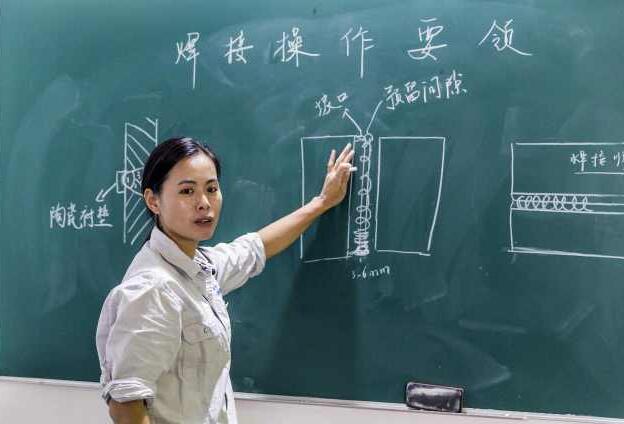 焊接操作要领
坡口
预留间隙
陶瓷衬垫
3-6mm
焊接